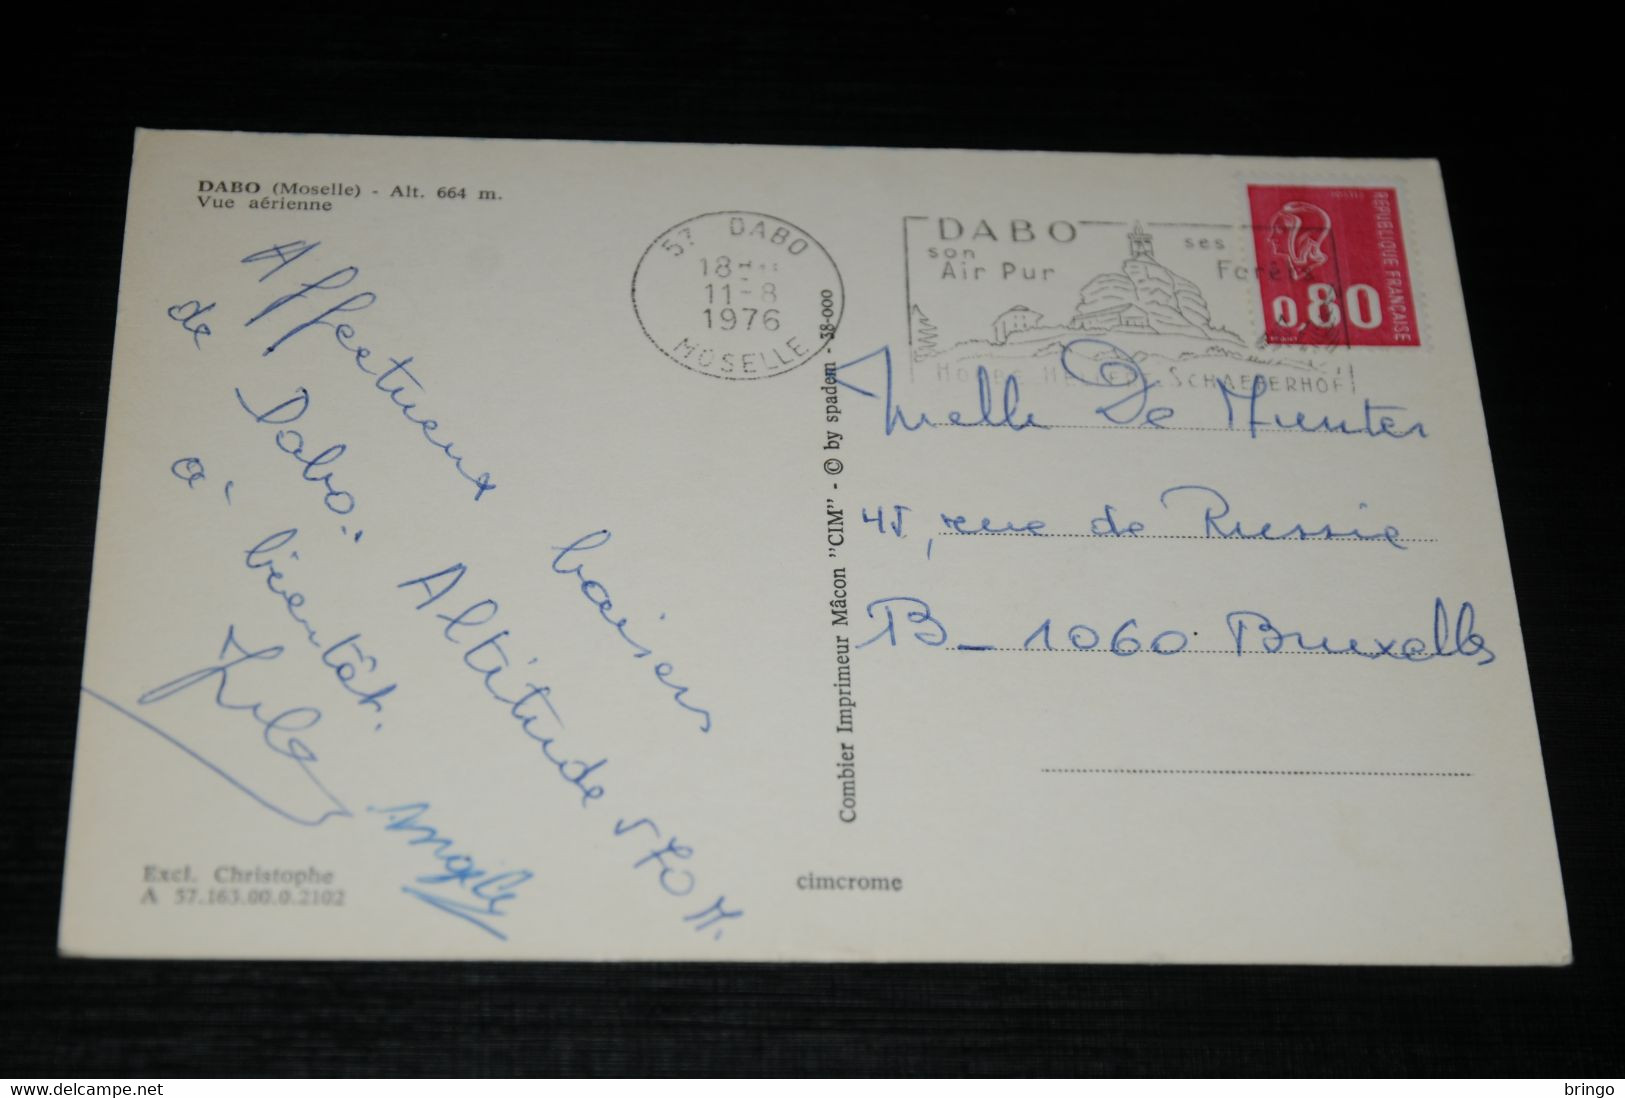 DABO (Moselle) - Alt. 664 m.
Vue aérienne
Affectueux baisers
de Dabo. Altitude 570 M.
à bientôt.
Angèle
Excl. Christophe
A 57.163.00.0.2102
57 DABO
18
11-8
1976
MOSELLE
DABO
son
Air Pur
ses
Forêts
SCHAEFERHOF
REPUBLIQUE FRANÇAISE
0,80
Combier Imprimeur Mâcon "CIM" - © by spadem - 38-000
cimcrome
Melle De Munter
45, rue de Russie
B-1060 Bruxelles
delcampe.net
bringo